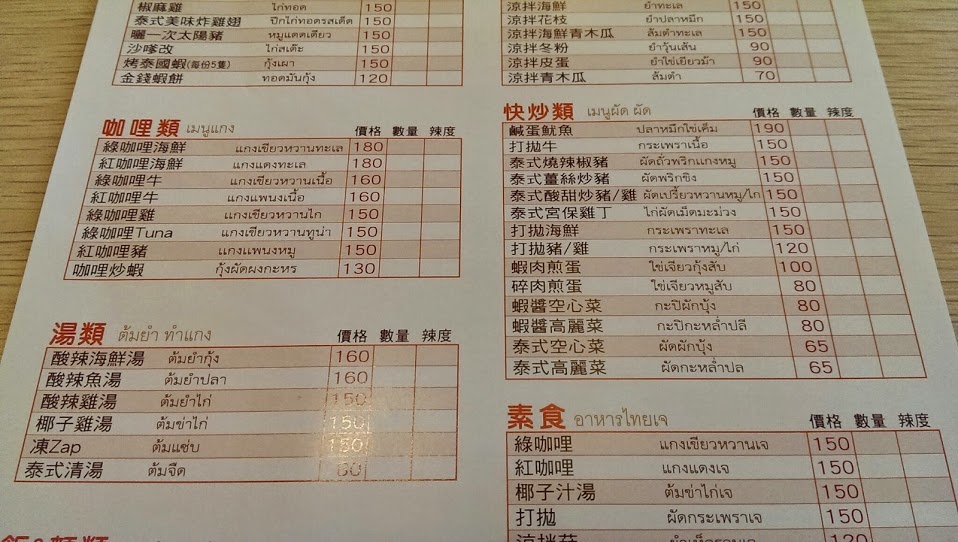 椒麻雞 ไก่ทอด 150
泰式美味炸雞翅 ปีกไก่ทอดรสเด็ด 150
曬一次太陽豬 หมูแดดเดียว 150
沙嗲改 ไก่สเต๊ะ 150
烤泰國蝦(每份5隻) กุ้งเผา 150
金錢蝦餅 ทอดมันกุ้ง 120
咖哩類 เมนูแกง 價格 數量 辣度
綠咖哩海鮮 แกงเขียวหวานทะเล 180
紅咖哩海鮮 แกงแดงทะเล 180
綠咖哩牛 แกงเขียวหวานเนื้อ 160
紅咖哩牛 แกงแพนงเนื้อ 160
綠咖哩雞 แกงเขียวหวานไก่ 150
綠咖哩Tuna แกงเขียวหวานทูน่า 150
紅咖哩豬 แกงแพนงหมู 150
咖哩炒蝦 กุ้งผัดผงกะหร 130
湯類 ต้มยำ ทำแกง 價格 數量 辣度
酸辣海鮮湯 ต้มยำกุ้ง 160
酸辣魚湯 ต้มยำปลา 160
酸辣雞湯 ต้มยำไก่ 150
椰子雞湯 ต้มข่าไก่ 150
凍Zap ต้มแซ่บ 150
泰式清湯 ต้มจืด 60
涼拌海鮮 ยำทะเล 150
涼拌花枝 ยำปลาหมึก 150
涼拌海鮮青木瓜 ส้มตำทะเล 150
涼拌冬粉 ยำวุ้นเส้น 90
涼拌皮蛋 ยำไข่เยี่ยวม้า 90
涼拌青木瓜 ส้มตำ 70
快炒類 เมนูผัด ผัด 價格 數量 辣度
鹹蛋魷魚 ปลาหมึกไข่เค็ม 190
打拋牛 กระเพราเนื้อ 150
泰式燒辣椒豬 ผัดถั่วพริกแกงหมู 150
泰式薑絲炒豬 ผัดพริกขิง 150
泰式酸甜炒豬/雞 ผัดเปรี้ยวหวานหมู/ไก่ 150
泰式宮保雞丁 ไก่ผัดเม็ดมะม่วง 150
打拋海鮮 กระเพราทะเล 150
打拋豬/雞 กระเพราหมู/ไก่ 120
蝦肉煎蛋 ไข่เจียวกุ้งสับ 100
碎肉煎蛋 ไข่เจียวหมูสับ 80
蝦醬空心菜 กะปิผักบุ้ง 80
蝦醬高麗菜 กะปิกะหล่ำปลี 80
泰式空心菜 ผัดผักบุ้ง 65
泰式高麗菜 ผัดกะหล่ำปล 65
素食 อาหารไทยเจ 價格 數量 辣度
綠咖哩 แกงเขียวหวานเจ 150
紅咖哩 แกงแดงเจ 150
椰子汁湯 ต้มข่าไก่เจ 150
打拋 ผัดกระเพราเจ 150